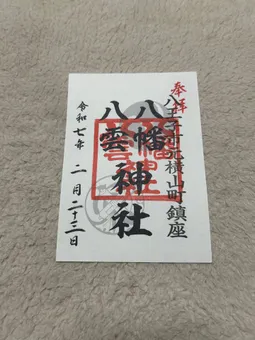 奉拝
八王子市元横山町鎮座
八幡
八雲
神社
令和七年 二月二十三日